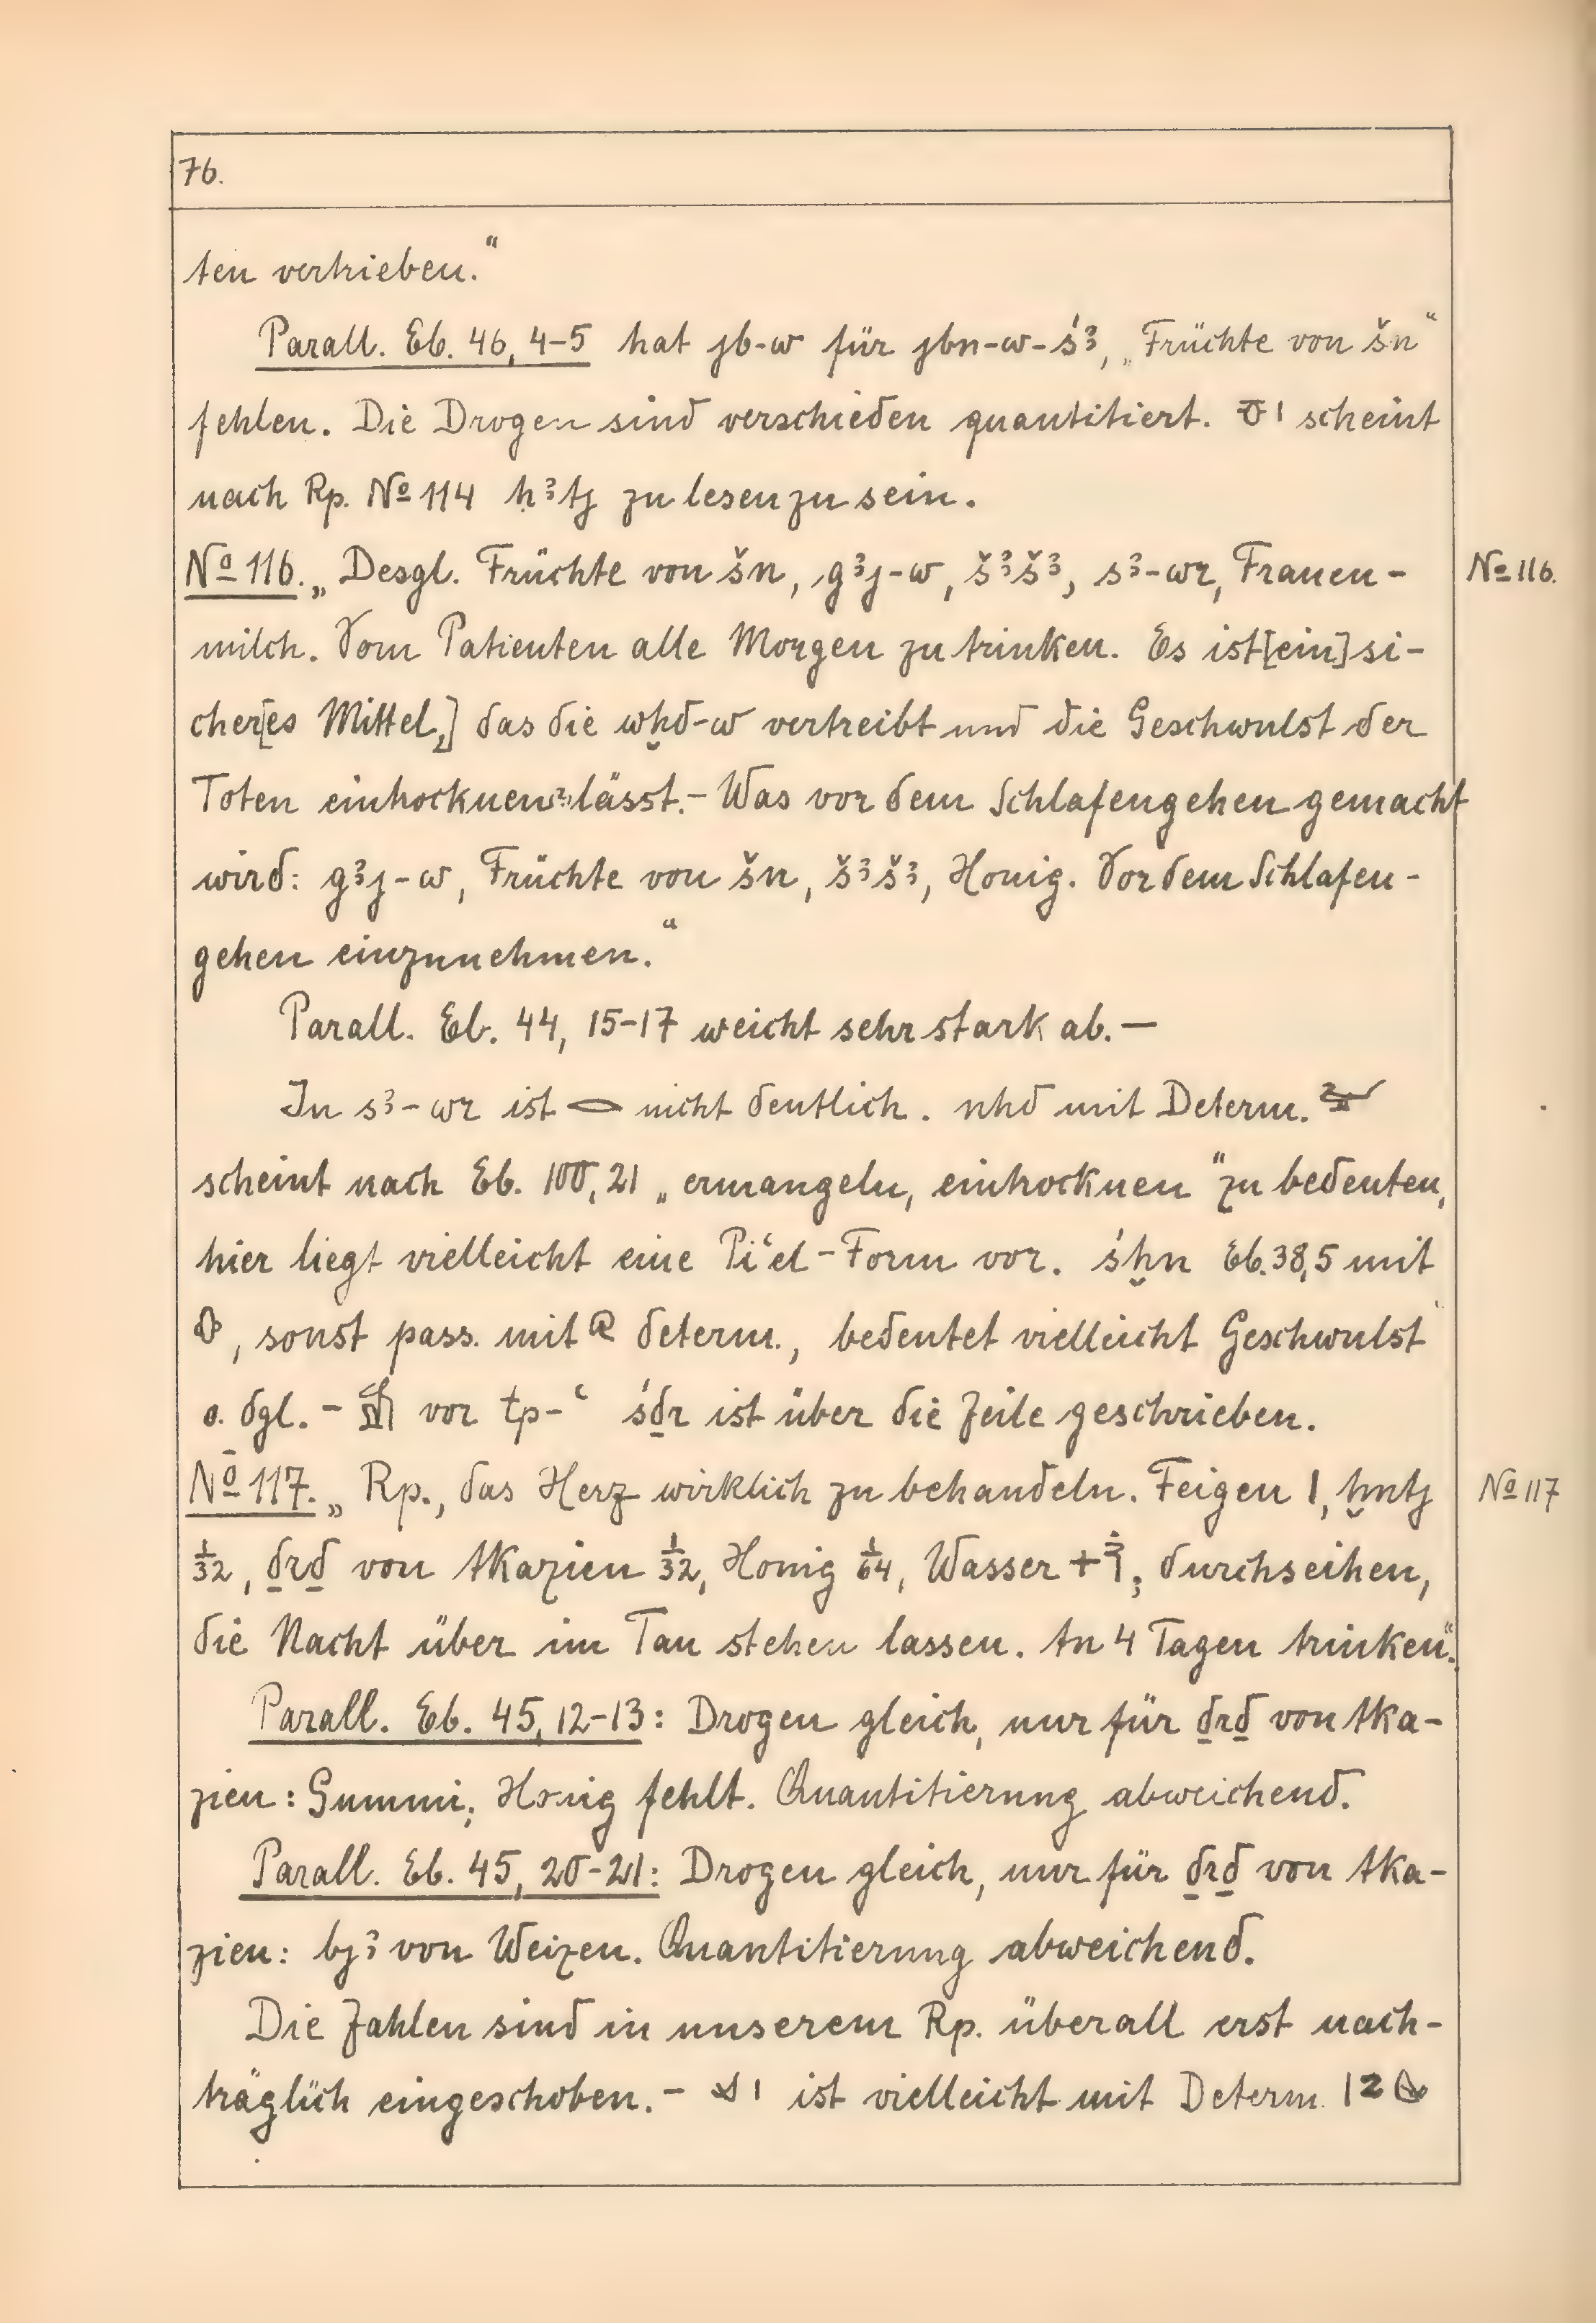 76.
ten vertrieben.“
Parall. Eb. 46, 4-5 hat jb-w für jbn-w-śꜣ, „Früchte von šn“
fehlen. Die Drogen sind verschieden quantitiert. scheint
nach Rp. No 114 ḥꜣtj zu lesen zu sein.
No 116. „Desgl. Früchte von šn, gꜣj-w, šꜣšꜣ, sꜣ-wr, Frauen-
No 116.
milch. Vom Patienten alle Morgen zu trinken. Es ist [ein] si-
cher[es Mittel,] das die wḫd-w vertreibt und die Geschwulst der
Toten eintrocknen lässt.- Was vor dem Schlafengehen gemacht
wird: gꜣj-w, Früchte von šn, šꜣšꜣ, Honig. Vor dem Schlafen-
gehen einzunehmen.“
Parall. Eb. 44, 15-17 weicht sehr stark ab.—
In sꜣ-wr ist 𓂋 nicht deutlich. nhd mit Determ.
scheint nach Eb. 100, 21 „ermangeln, eintrocknen“ zu bedeuten,
hier liegt vielleicht eine Piʿel-Form vor. śḫn Eb. 38,5 mit
, sonst pass. mit determ., bedeutet vielleicht Geschwulst
o. dgl. - vor tp-ʿ śḏr ist über die Zeile geschrieben.
No 117. „Rp., das Herz wirklich zu behandeln. Feigen 1, ḫntj
No 117
1/32, ḏrḏ von Akazien 1/32, Honig 1/64, Wasser + , durchseihen,
die Nacht über im Tau stehen lassen. An 4 Tagen trinken“.
Parall. Eb. 45, 12-13: Drogen gleich, nur für ḏrḏ von Aka-
zien: Gummi; Honig fehlt. Quantitierung abweichend.
Parall. Eb. 45, 20-21: Drogen gleich, nur für ḏrḏ von Aka-
zien: bjꜣ von Weizen. Quantitierung abweichend.
Die Zahlen sind in unserem Rp. überall erst nach-
träglich eingeschoben. - ist vielleicht mit Determ.